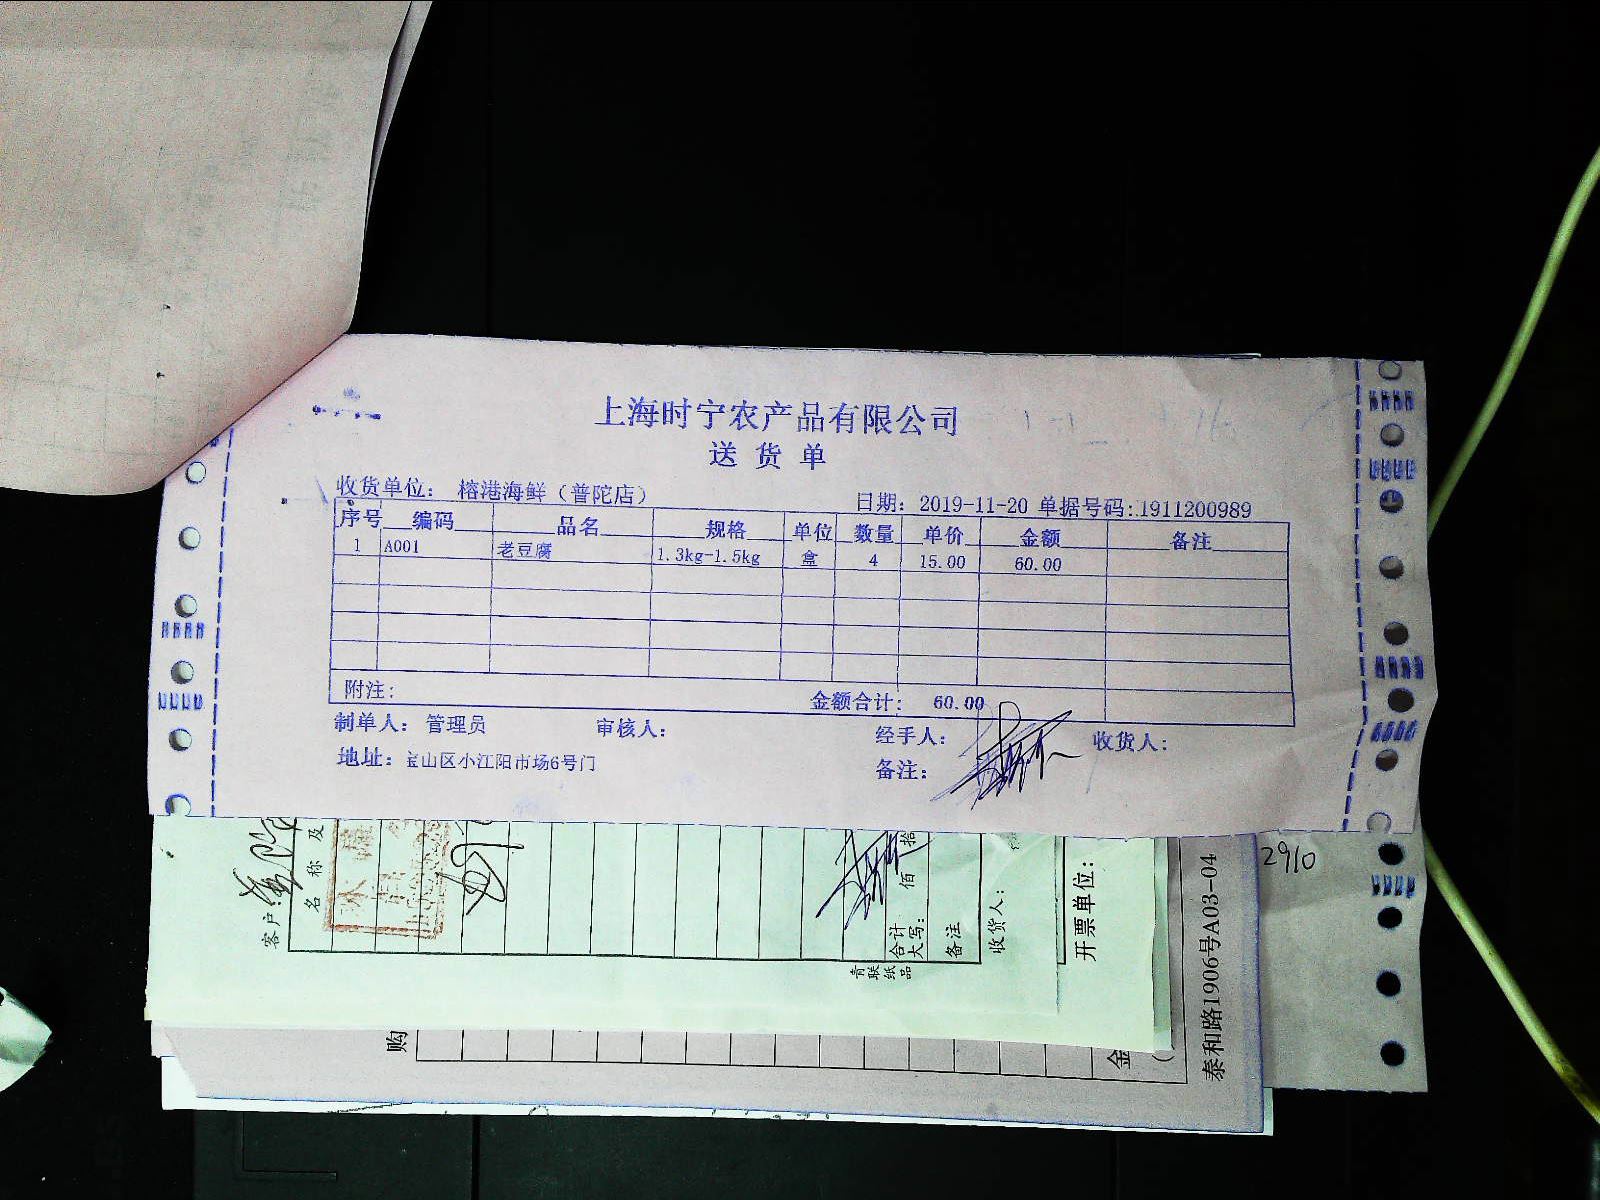 上海时宁农产品有限公司
送货单
收货单位： 榕港海鲜（普陀店） 日期：2019-11-20 单据号码:1911200989
序号 编码 品名 规格 单位 数量 单价 金额 备注
1 A001 老豆腐 1.3kg-1.5kg 盒 4 15.00 60.00
附注： 金额合计： 60.00
制单人： 管理员 审核人： 经手人： 收货人：
地址：宝山区小江阳市场6号门 备注：
客户
名称及
佰 拾
合计
大写：
备注
收货人：
青联纸品
开票单位：
购
金
泰和路1906号A03-04
2910